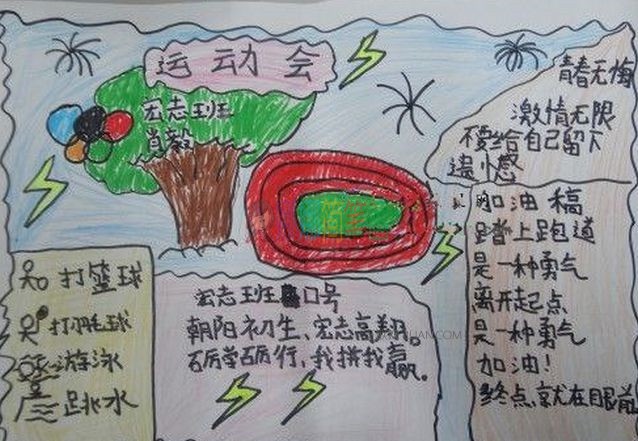 运动会
宏志班
肖毅
青春无悔
激情无限
不要给自己留下
遗憾
加油稿
踏上跑道
是一种勇气
离开起点
是一种勇气
加油!
终点,就在眼前
宏志班口号
朝阳初生、宏志高翔。
砺学砺行,我拼我赢。
打篮球
打羽毛球
游泳
跳水